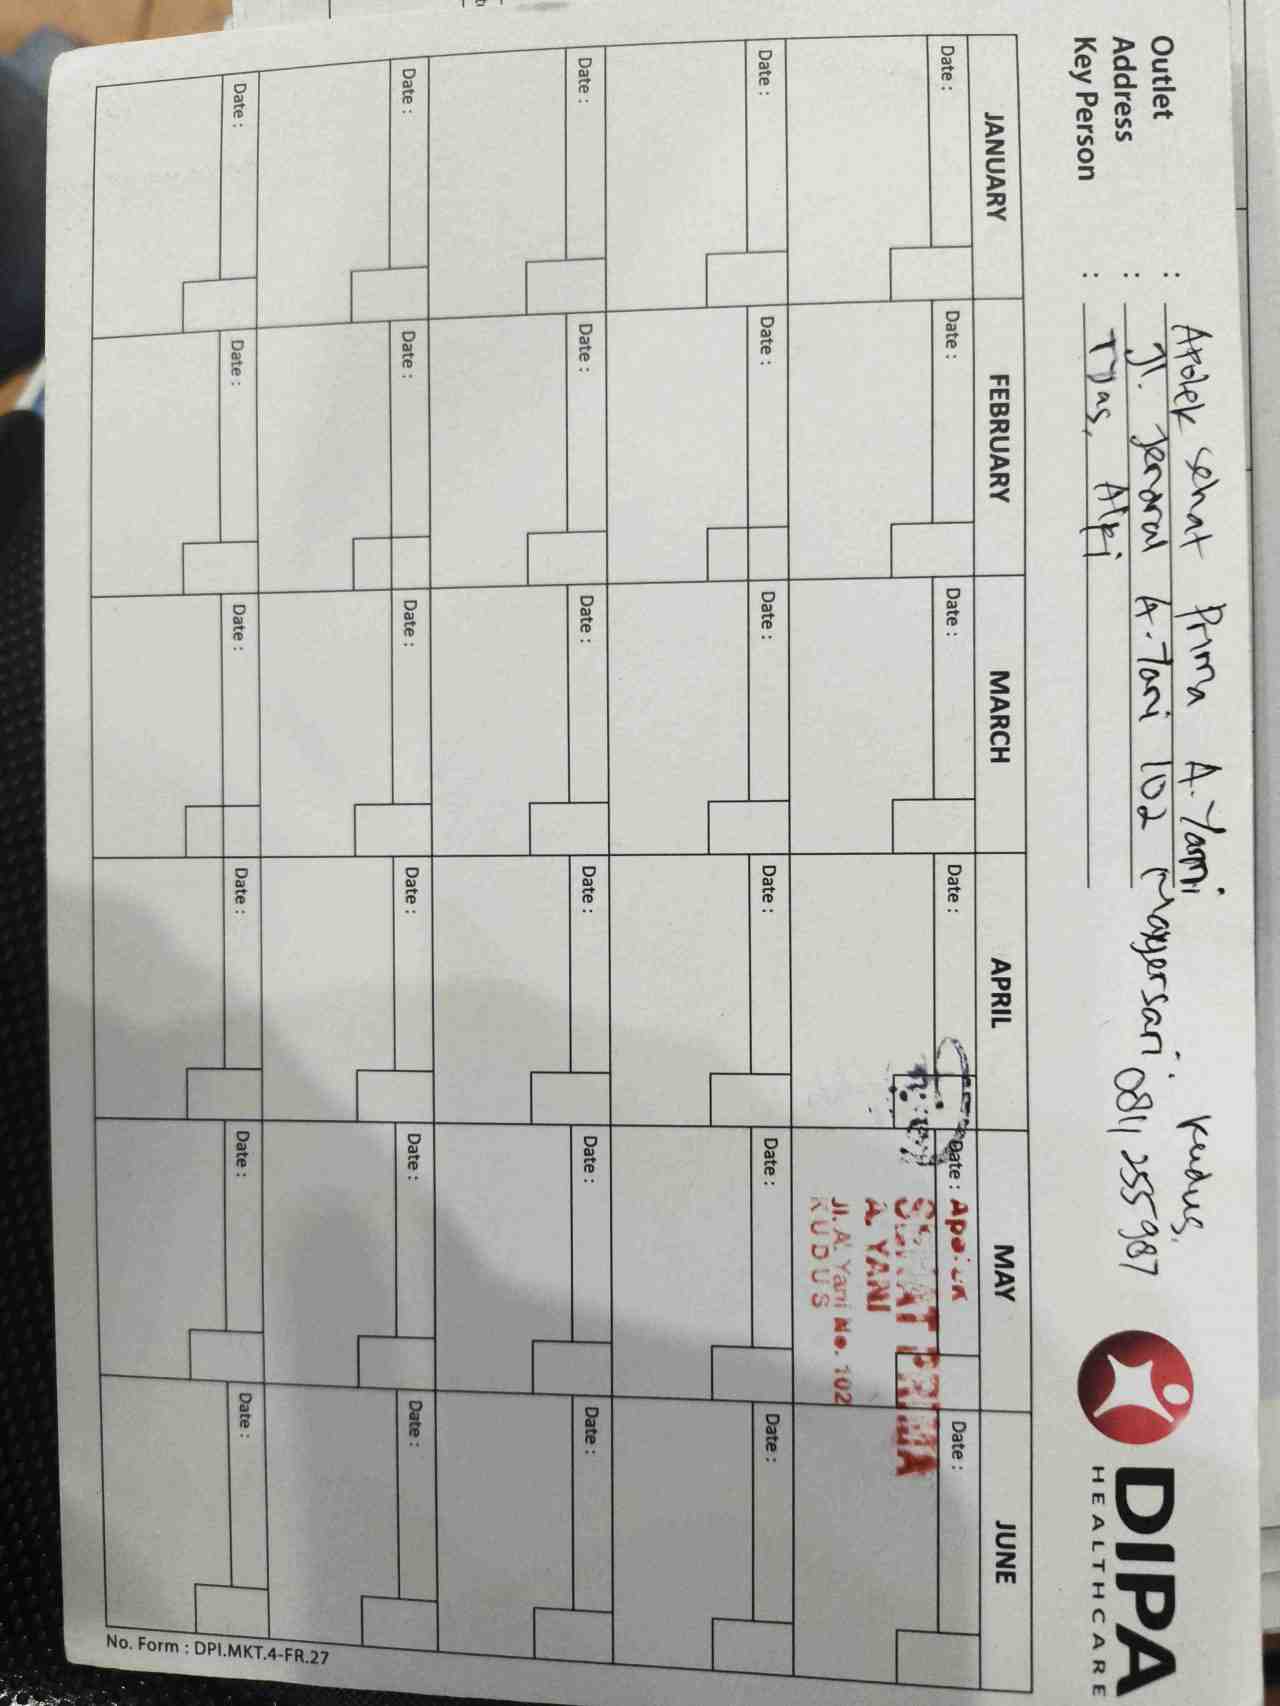 Outlet : Apotek Sehat Prima A. Yani
Address : Jl. Jenderal A. Yani 102 Magersari. Kudus,
0811 255 987
Key Person : Tyas, Alfi
DIPA
HEALTHCARE
JANUARY FEBRUARY MARCH APRIL MAY JUNE
Date : Date : Date : Date : Date : Date :
Apotek
SEHAT PRIMA
A. YANI
Jl. A. Yani No. 102
KUDUS
Date : Date : Date : Date : Date : Date :
Date : Date : Date : Date : Date : Date :
Date : Date : Date : Date : Date : Date :
Date : Date : Date : Date : Date : Date :
No. Form : DPI.MKT.4-FR.27